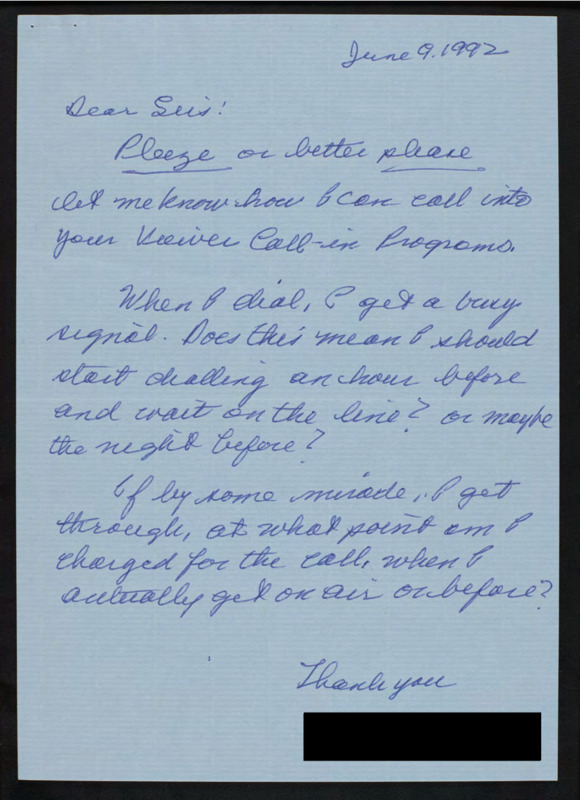 June 9. 1992
Dear Sirs!
Pleeze or better please
let me know how I can call into
your Viewer Call-in Programs.
When I dial, I get a busy
signal. Does this mean I should
start dialling an hour before
and wait on the line? or maybe
the night before?
If by some miracle, I get
through, at what point am I
charged for the call, when I
actually get on air or before?
Thank you